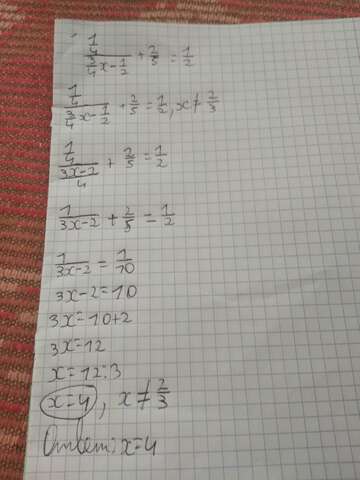 (1/4)/(3/4 x - 1/2) + 2/5 = 1/2
(1/4)/(3/4 x - 1/2) + 2/5 = 1/2, x ≠ 2/3
(1/4)/((3x-2)/4) + 2/5 = 1/2
1/(3x-2) + 2/5 = 1/2
1/(3x-2) = 1/10
3x-2=10
3x=10+2
3x=12
x=12:3
x=4, x ≠ 2/3
Ответ: x=4